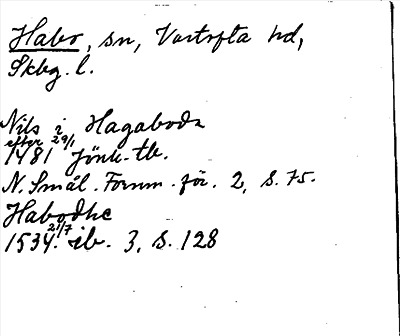 Habo, sn, Vartofta hd,
Skbg. l.
Nils i Hagabodha
efter 29/1
1481 Jönk. tb.
N. Smål. Fornm. för. 2, s. 75.
Habodhe
1534 21/7 ib. 3, s. 128